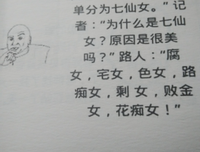 单分为七仙女。”记
者：“为什么是七仙
女？原因是很美
吗？”路人：“腐
女，宅女，色女，路
痴女，剩女，败金
女，花痴女！”